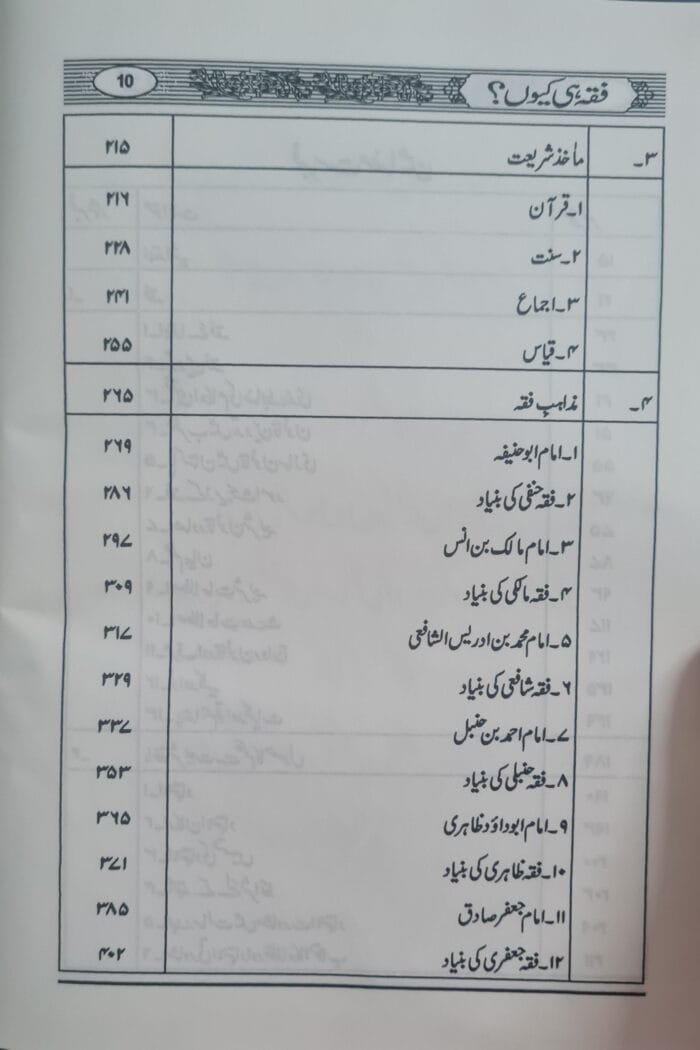 فقہ ہی کیوں؟ 10
۳۔ ماخذ شریعت ۲۱۵
۱۔ قرآن ۲۱۶
۲۔ سنت ۲۲۸
۳۔ اجماع ۲۴۱
۴۔ قیاس ۲۵۵
۴۔ مذاہب فقہ ۲۶۵
۱۔ امام ابو حنیفہ ۲۶۹
۲۔ فقہ حنفی کی بنیاد ۲۸۶
۳۔ امام مالک بن انس ۲۹۷
۴۔ فقہ مالکی کی بنیاد ۳۰۹
۵۔ امام محمد بن ادریس الشافعی ۳۱۷
۶۔ فقہ شافعی کی بنیاد ۳۲۹
۷۔ امام احمد بن حنبل ۳۳۷
۸۔ فقہ حنبلی کی بنیاد ۳۵۳
۹۔ امام ابو داؤد ظاہری ۳۶۵
۱۰۔ فقہ ظاہری کی بنیاد ۳۷۱
۱۱۔ امام جعفر صادق ۳۸۵
۱۲۔ فقہ جعفری کی بنیاد ۴۰۲